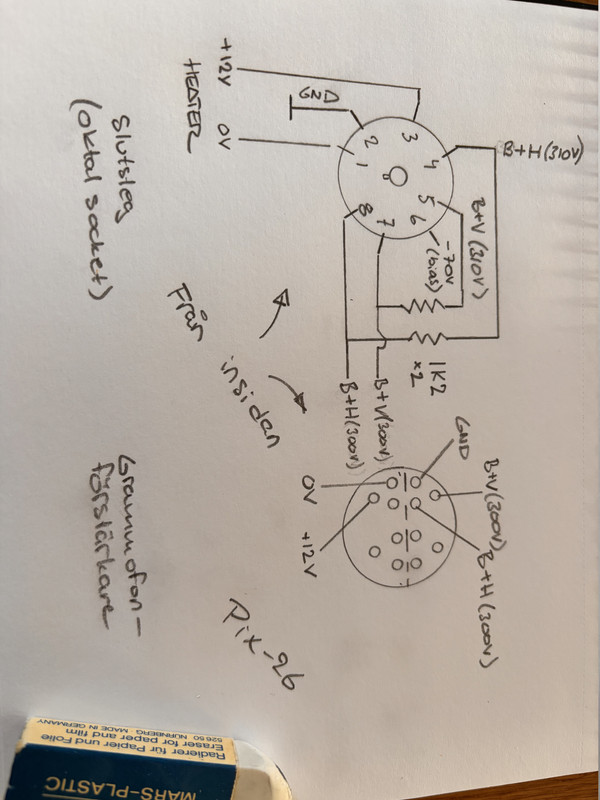 +12V
0V
HEATER
GND
1
2
3
4
5
6
7
8
B+H (310V)
B+V (310V)
-70V
(bias)
1K2
x2
B+H (300V)
B+V (300V)
Slutsteg
(oktal socket)
Från insidan
GND
B+V (300V)
B+H (300V)
0V
+12V
Grammofon-
förstärkare
Pix-26
MARS-PLASTIC
Eraser for paper and film
Radierer für Papier und Folie
526 50 NÜRNBERG MADE IN GERMANY